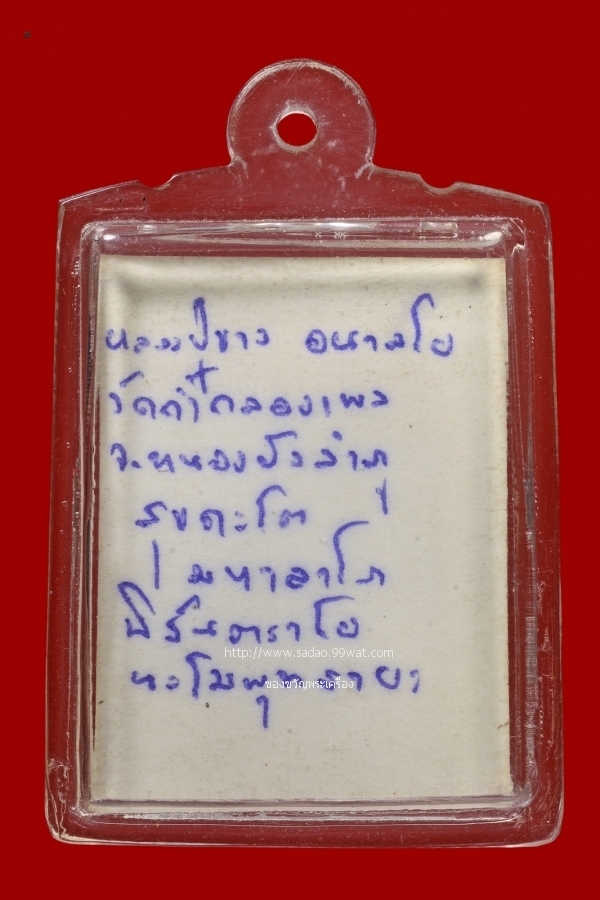 หลวงปู่ขาว อนาลโย
วัดถ้ำกลองเพล
จ.หนองบัวลำภู
สุขคะโต
มหาลาโภ
นิรันตราโย
http://www.sadao.99wat.com
นะโมพุทธายา
ของขวัญพระเครื่อง